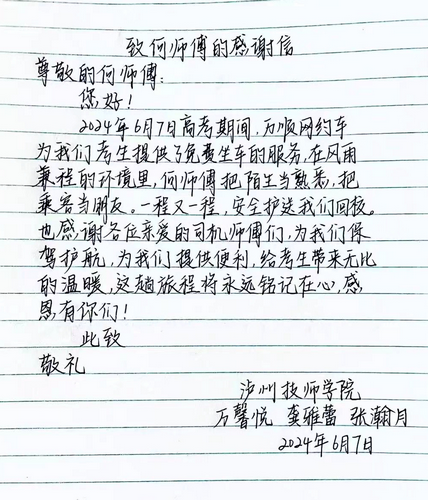 致何师傅的感谢信
尊敬的何师傅:
您好!
2024年6月7日高考期间,万顺网约车
为我们考生提供了免费坐车的服务,在风雨
兼程的环境里,何师傅把陌生当熟悉,把
乘客当朋友。一程又一程,安全护送我们回校。
也感谢各位亲爱的司机师傅们,为我们保
驾护航,为我们提供便利,给考生带来无比
的温暖,这趟旅程将永远铭记在心,感
恩有你们!
此致
敬礼
泸州技师学院
万馨悦 龚雅蕾 张瀚月
2024年6月7日